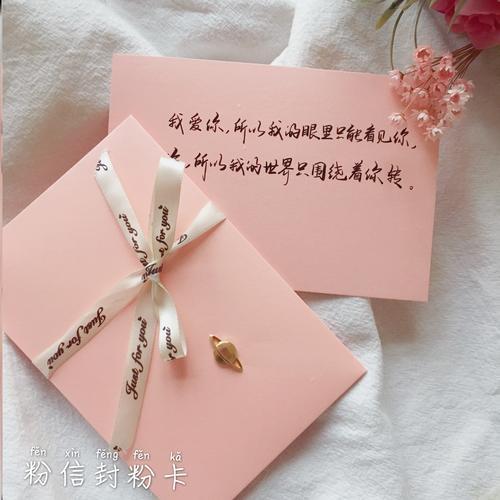 我爱你,所以我的眼里只能看见你,
所以我的世界只围绕着你转。
Just for you
Just for you
Just for you
Just for you
fěn xìn fēng fěn kǎ
粉信封粉卡